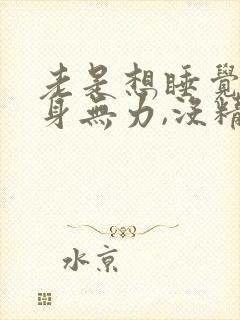 老是想睡覺
身無力,沒精
水京